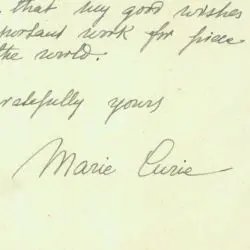 that my good wishes
important work for peace
the world.
gratefully yours
Marie Curie